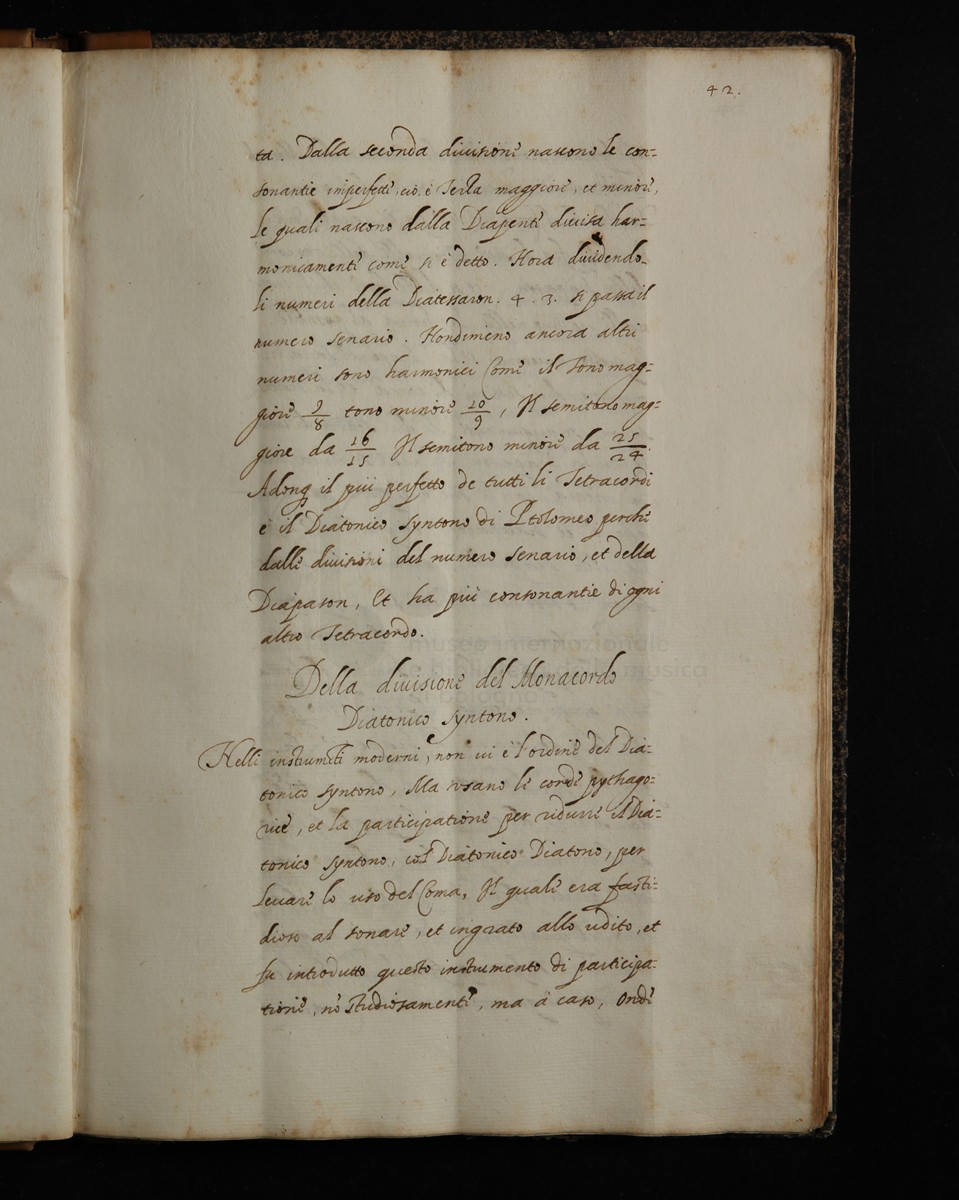 42.
ta. Dalla seconda divisione nascono le con=
sonantie imperfette, ciò è Terza maggiore, et minore,
le quali nascono dalla Diapente divisa har=
monicamente come si è detto. Hora dividendo
li numeri della Diatessaron. 4. 3. si passa il
numero senario. Nondimeno ancora altri
numeri sono harmonici Come il Tono mag=
giore 9/8 tono minore 10/9, Il semitono mag=
giore da 16/15 Il semitono minore da 25/24.
Adonq il più perfetto de tutti li Tetracordi
è il Diatonico syntono di Ptolomeo perche
dalle divisioni del numero senario, et della
Diapason, Et ha più consonantie di ogni
altro Tetracordo.
Della divisione del Monacordo
Diatonico syntono.
Nelli instrumēti moderni, non vi è l'ordine del Dia=
tonico syntono, Ma usano le corde pythago=
rice, et la participatione per ridurre il Dia=
tonico syntono, col Diatonico Diatono, per
levare lo uso del Coma, Il quale era fasti=
dioso al sonare, et ingrato allo udito, et
fu introdutto questo instrumento di participa=
tione, nō studiosamente, ma à caso, Onde
museo internazionale
biblioteca della musica